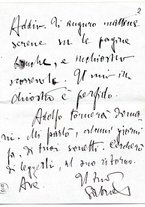 2
Addio. Ti auguro mattine
serene su le pagine
bianche, e inchiostro
scorrevole. Il mio in
chiostro è perfido.
Adolfo tornerà doma
ni. Mi parlò, alcuni giorni
fa, di tuoi sonetti. Canderò
di leggerli, al suo ritorno.
Ave
Il tuo
Gabriele